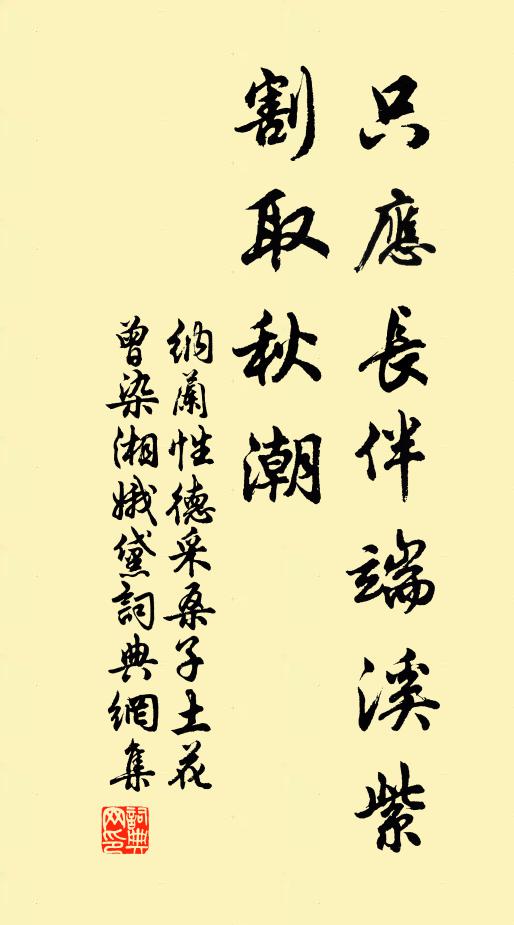 只應長伴端溪紫
割取秋潮
納蘭性德采桑子土花
曾染湘娥黛詞典網集
詞典
网印